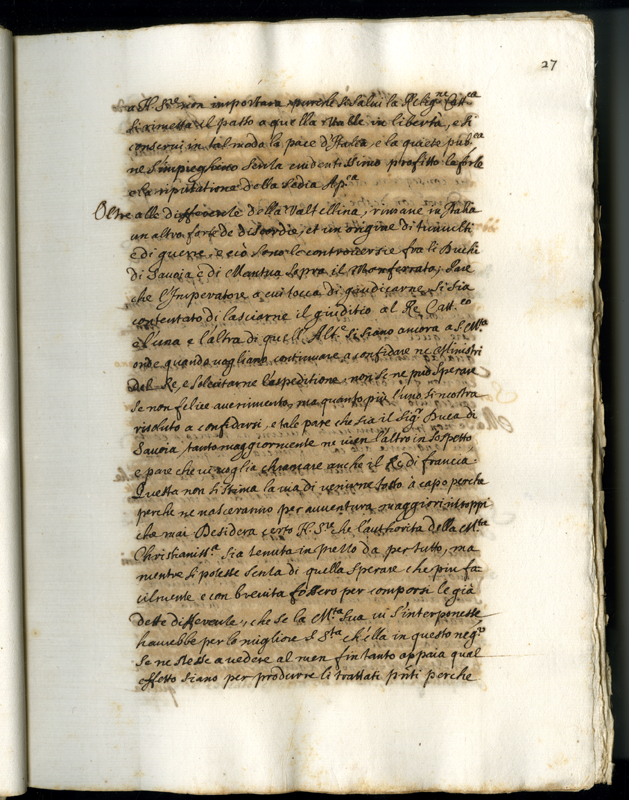 27
a N. Sre non importara purche si salvi la Religne Catt.ca
si rimetta il passo a quella Valle in libertà, e si
conservi in tal modo la pace d'Italia e la quiete pub.ca
ne s'impieghino senza evidentissimo profitto le forze
e la riputatione della Sedia Ap.ca
Oltre alle differenze della Valtellina, rimane in Italia
un altro fonte de discordie, et un origine di tumulti
e di guerre, e ciò sono le controversie fra li Duchi
di Savoia e di Mantua sopra il Monferrato, Pare
che l'Imperatore a cui tocca di giudicarne si sia
contentato di lasciarne il giuditio al Re Catt.co
e l'una e l'altra di quell' Alt.e si siano ancora a S. M.ta
onde quando vogliano continuare a confidare ne Ministri
del Re, e solecitarne l'espeditione, non se ne può sperare
se non felice avenimento, ma quanto più l'uno si mostra
risoluto a confidarsi, e tale pare che sia il Sig.r Duca di
Savoia tanto maggiormente ne vien l'altro in sospetto
e pare che vi voglia chiamare anche il Re di francia
Questa non si stima la via di venirne sotto à capo perche
perche ne nasceranno per avventura maggiori intoppi
che mai Desidera certo N. Sre che l'authorità della M.ta
Christianiss.a sia tenuta in prezzo da per tutto, ma
mentre si potesse senza di quella sperare che piu fa
cilmente e con brevità fossero per comporsi le già
dette differenze, che se la M.ta Sua vi s'interponesse
havrebbe per lo migliore S. S.ta ch'ella in questo neg.o
se ne stesse a vedere al men fin tanto appaia qual
effetto siano per produrre li trattati pñti perche